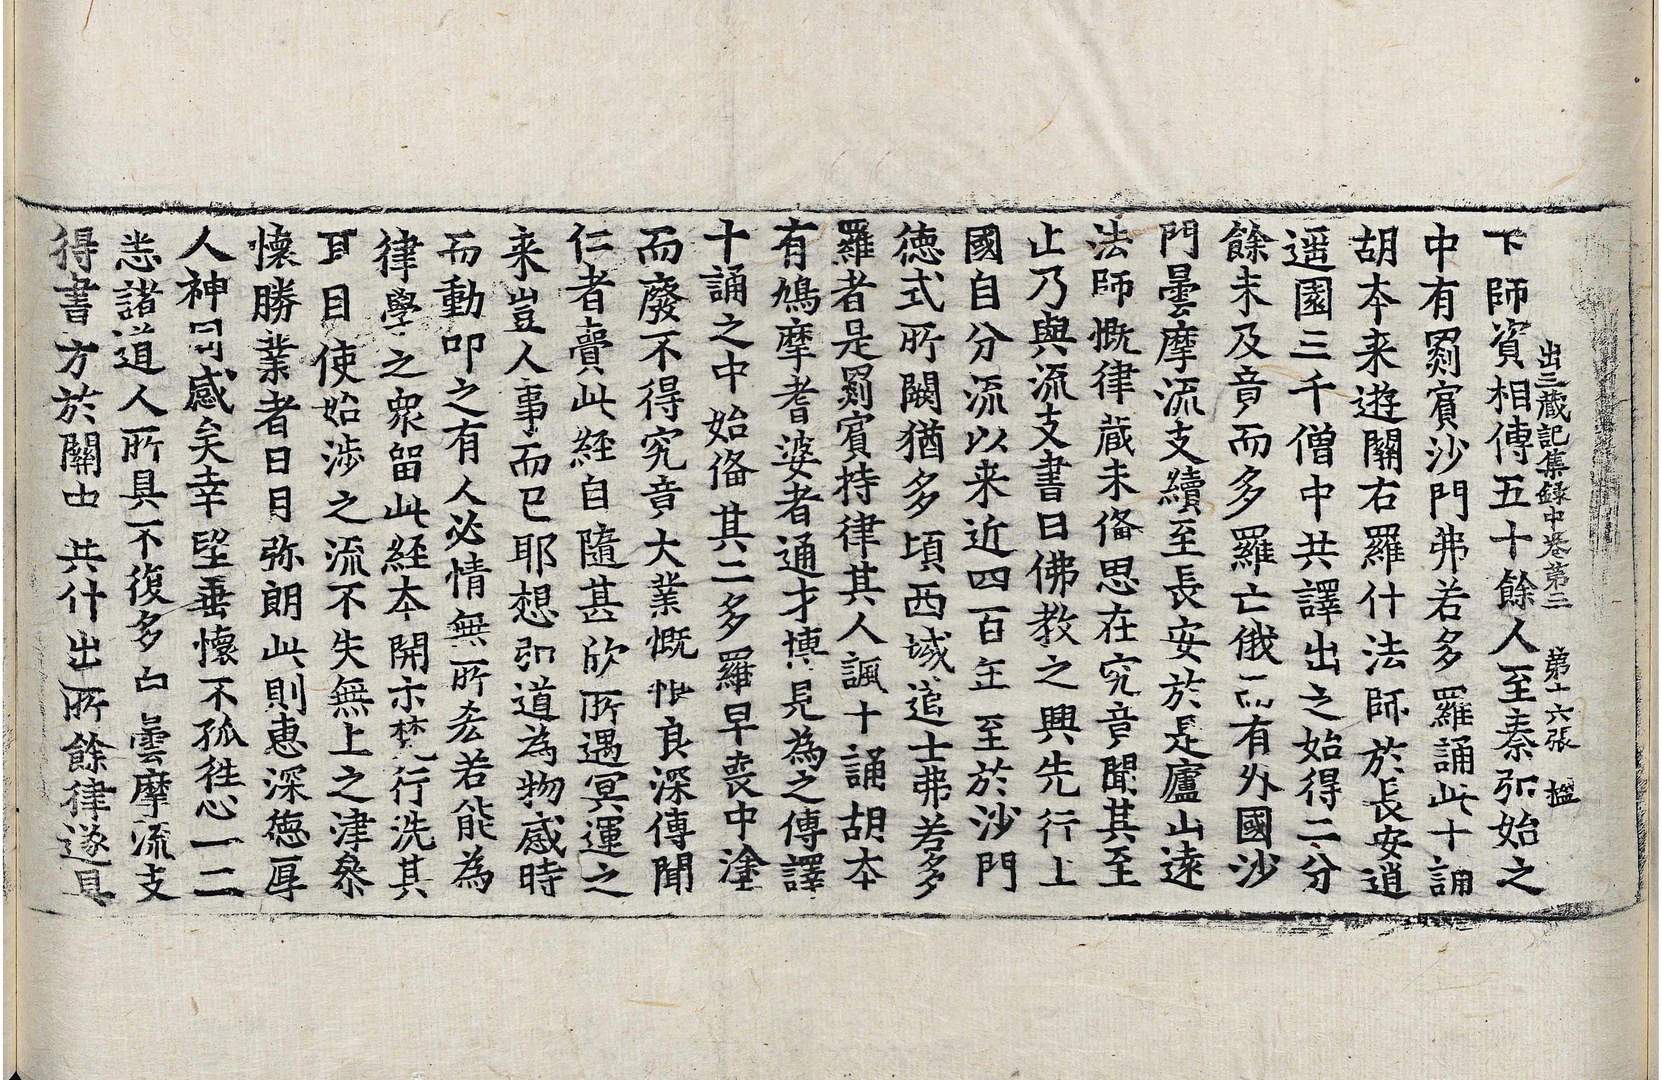 出三藏記集錄中卷第三 第十六張 楹
下師資相傳五十餘人至秦弘始之
中有罽賓沙門弗若多羅誦此十誦
胡本来遊關右羅什法師於長安逍
遥園三千僧中共譯出之始得二分
餘未及竟而多羅亡俄而有外國沙
門曇摩流支續至長安於是廬山遠
法師慨律藏未俻思在究竟聞其至
止乃與流支書曰佛教之興先行上
國自分流以来近四百年至於沙門
德式所闕猶多頃西域道士弗若多
羅者是罽賓持律其人諷十誦胡本
有鳩摩耆婆者通才博見為之傳譯
十誦之中始俻其二多羅早喪中塗
而廢不得究竟大業慨恨良深傳聞
仁者賷此経自隨甚欣所遇冥運之
来豈人事而已耶想弘道為物感時
而動叩之有人必情無所吝若能為
律學之衆留此経本開示梵行洗其
耳目使始涉之流不失無上之津叅
懷勝業者日月弥朗此則惠深德厚
人神同感矣幸望垂懷不孤往心一二
悉諸道人所具不復多白曇摩流支
得書方於關中 共什出所餘律遂具